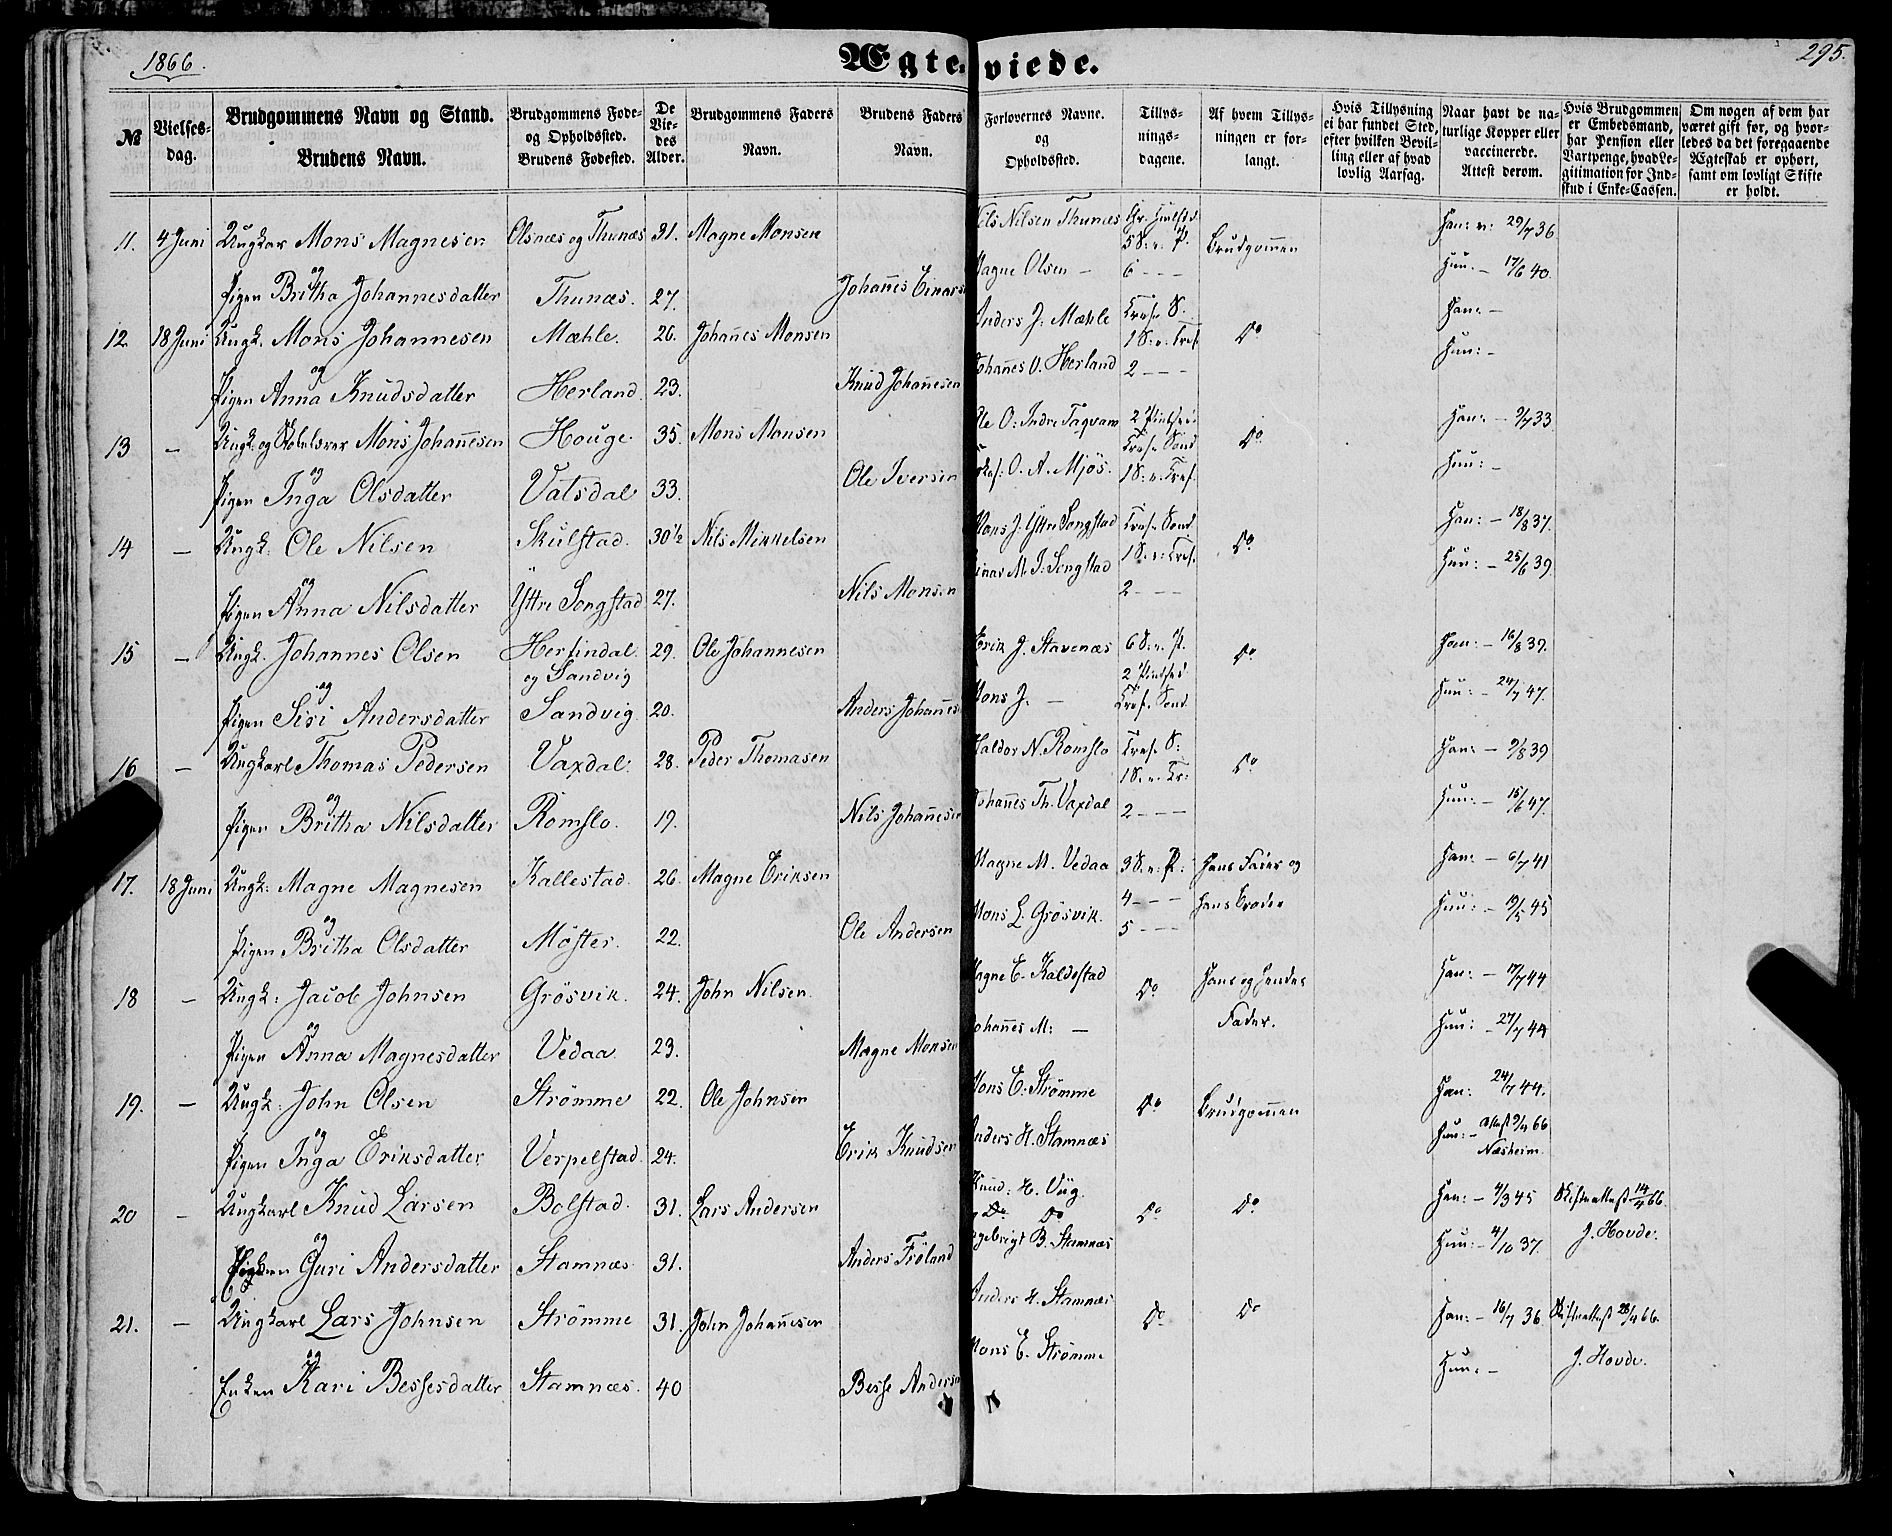 1866.
Ægteviede.
295.
№
Vielses-dag.
Brudgommens Navn og Stand.
Brudens Navn.
Brudgommens Føde- og Opholdssted.
Brudens Fødested.
De Vie-des Alder.
Brudgommens Faders Navn.
Brudens Faders Navn.
Forlovernes Navne. og Opholdssted.
Tillys-nings-dagene.
Af hvem Tillys-ningen er for-langt.
Hvis Tillysning ei har fundet Sted, efter hvilken Bevil-ling eller af hvad lovlig Aarsag.
Naar havt de na-turlige Kopper eller vaccinerede. Attest derom.
Hvis Brudgommen er Embedsmand, har Pension eller Vartpenge, hvad Le-gitimation for Ind-skud i Enke-Cassen.
Om nogen af dem har været gift før, og hvor-ledes da det foregaaende Ægteskab er ophørt, samt om lovligt Skifte er holdt.
11. 4 Juni Ungkar Mons Magnesen Olsnæs og Thunæs 31. Magne Monsen Nils Nilsen Thunæs 5 S. e. P. Brudgommen Han: v: 29/7 36
og
Pigen Britha Johannesdatter Thunæs. 27. Johañes Einars Magne Olsen – 6 – – – Hun. – 17/6 40.
12 18 Juni Ungk. Mons Johannesen Mæhle. 26. Johañes Monsen Anders J. Mæhle Tref. S. 1 S. e. Tref. Do Han: –
og
Pigen Anna Knudsdatter Herland. 23. Knud Johañesen Johañes O. Herland 2 – – – Hun: –
13 – Ungk. og Mons Johañesen Houge. 35. Mons Monsen Ole O. Indre Taqvam 2 Pintsed. Tref. Sønd. Do Han: – 9/7 33
og
Pigen Inga Olsdatter Vatsdal 33. Ole Iversen O. A. Mjös. 1 S. e. Tref. Hun: –
14 – Ungk. Ole Nilsen Skulstad. 30½ Nils Mikkelsen Mons J. Yttre Songstad Tref. Sønd. 1 S. e. Tref. Do Han: – 18/8 37.
og
Pigen Anna Nilsdatter Yttre Songstad 27. Nils Monsen Einar M. I. Songstad 2 – – – Hun: – 25/6 39.
15 – Ungk. Johannes Olsen Herfindal. og Sandvig 29. Ole Johannesen Erik J. Stavenæs 6 S. e. P. 2 Pintsed. Do Han: – 16/8 39.
og
Pigen Siri Andersdatter Sandvig. 20. Anders Johañes Mons J. – Tref. Sønd. Hun: – 24/7 47.
16 – Ungkarl Thomas Pedersen Vaxdal. 28. Peder Thomasen Haldor N. Romslo Tref. S: 1 S. e. Tr: Do Han: – 9/8 39
og
Pigen Britha Nilsdatter Romslo. 19. Nils Johañesen Johañes Th. Vaxdal 2 – – – Hun: – 15/6 47.
17. 18 Juni Ungk: Magne Magnesen Kallestad. 26. Magne Eriksen Magne M. Vedaa 3 S. e. P. Hans Fader og Han: – 6/7 41
og
Pigen Britha Olsdatter Møster. 22. Ole Andersen Mons L. Grösvik. 4 – – – 5 – – – hans Broder Hun: – 19/5 45
18 – Ungk: Jacob Johnsen Grösvik. 24. John Nilsen. Magne E. Kaldestad Do Hans og hendes Han: – 17/7 44
og
Pigen Anna Magnesdatter Vedaa 23. Magne Monsen Johañes M: – Fader. Hun: – 27/7 44
19. – Ungk: John Olsen Strömme 22. Ole Johnsen Mons E. Strömme Do Brudgommen Han: 24/7 44.
og
Pigen Inga Eriksdatter Verpelstad. 24. Erik Knudsen Anders H. Stamnæs Hun: – Attest 9/4 66 Næsheim.
20 – Ungkarl Knud Larsen Bolstad. 31. Lars Andersen Knud: H. Viig. Do Do Do Han: – 4/3 45 Skifteattest 14/4 66.
og
Pigen Guri Andersdatter Stamnæs 31. Anders Fröland B. Stamnæs Hun: – 4/10 37. J. Hovde.
21. – Ungkarl Lars Johnsen Strömme 31. John Johañesen Anders H. Stamnæs Do Do Han: – 16/7 36 Skifteattest 28/4 66.
og
Enken Kari Bessesdatter Stamnæs. 40 Besse Andersen Mons E. Strömme Hun: – J. Hovde.